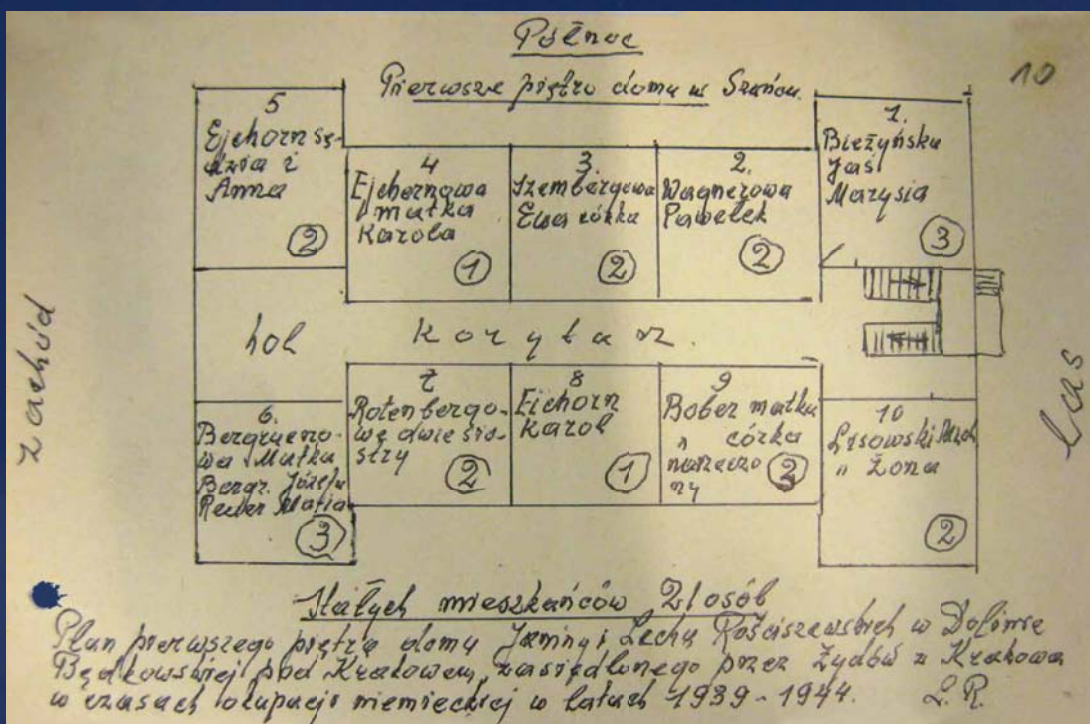 Północ
10
Pierwsze piętro domu w
5
Ejchorn sę-
dzia i
Anna
2
4
Ejchornowa
matka
Karola
1
3.
Szembergowa
Ewa córka
2
2.
Wagnerowa
Pawełek
2
1.
Bieżyńska
Jaś
Marysia
3
zachód
hol
Korytarz.
las
6.
Bergrueno-
wa Matka
Bergr. Józefa
Maria
3
7
Rotenbergo-
we dwie sio-
stry
2
8
Eichorn
Karol
1
9
Bober matka
" córka
narzeczo
ny
10
Lisowski
" Żona
2
Stałych mieszkańców 21 osób
Plan pierwszego piętra domu Janiny i Lecha Rościszewskich w Dolinie
Będkowskiej pod Krakowem, zasiedlonego przez Żydów z Krakowa
w czasach okupacji niemieckiej w latach 1939-1944. L.R.